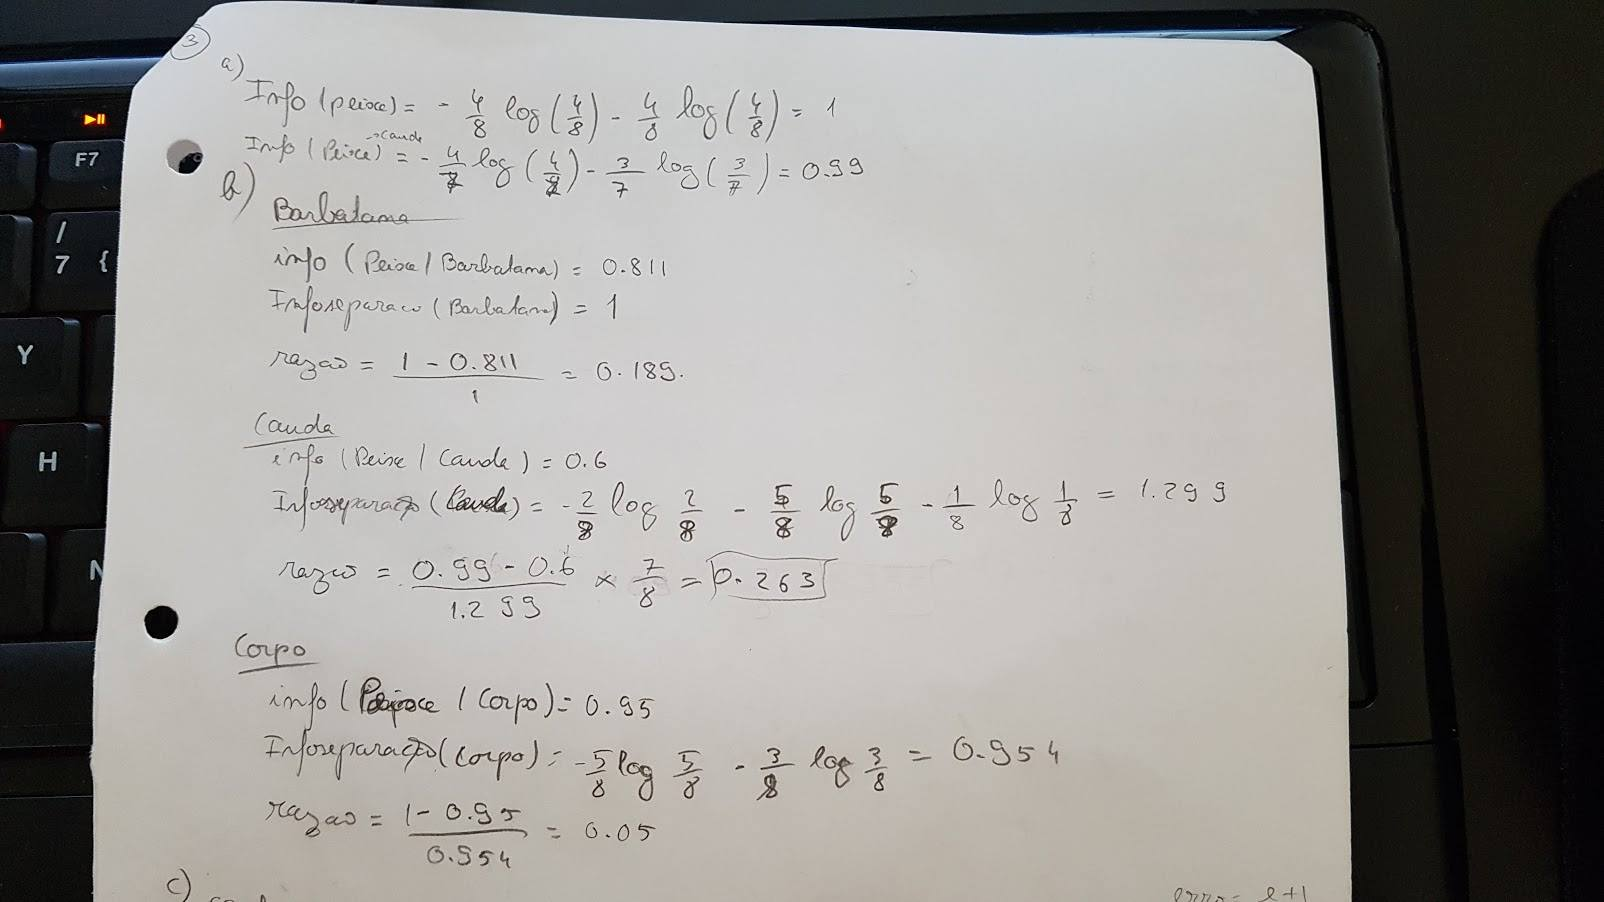 3
a)
Info (peixe) = - 4/8 log (4/8) - 4/8 log (4/8) = 1
Info (Peixe)→Cauda = - 4/7 log (4/7) - 3/7 log (3/7) = 0.99
b)
Barbatana
info (Peixe / Barbatana) = 0.811
Infoseparaco (Barbatana) = 1
razao = (1 - 0.811)/1 = 0.189.
Cauda
info (Peixe / Cauda) = 0.6
Infoseparação (Cauda) = - 2/8 log 2/8 - 5/8 log 5/8 - 1/8 log 1/8 = 1.299
razão = (0.99 - 0.6)/1.299 × 7/8 = 0.263
Corpo
info (Peixe / Corpo) = 0.95
Infoseparação (Corpo) = - 5/8 log 5/8 - 3/8 log 3/8 = 0.954
razao = (1 - 0.95)/0.954 = 0.05
c)
F7
/
7 {
Y
H
N